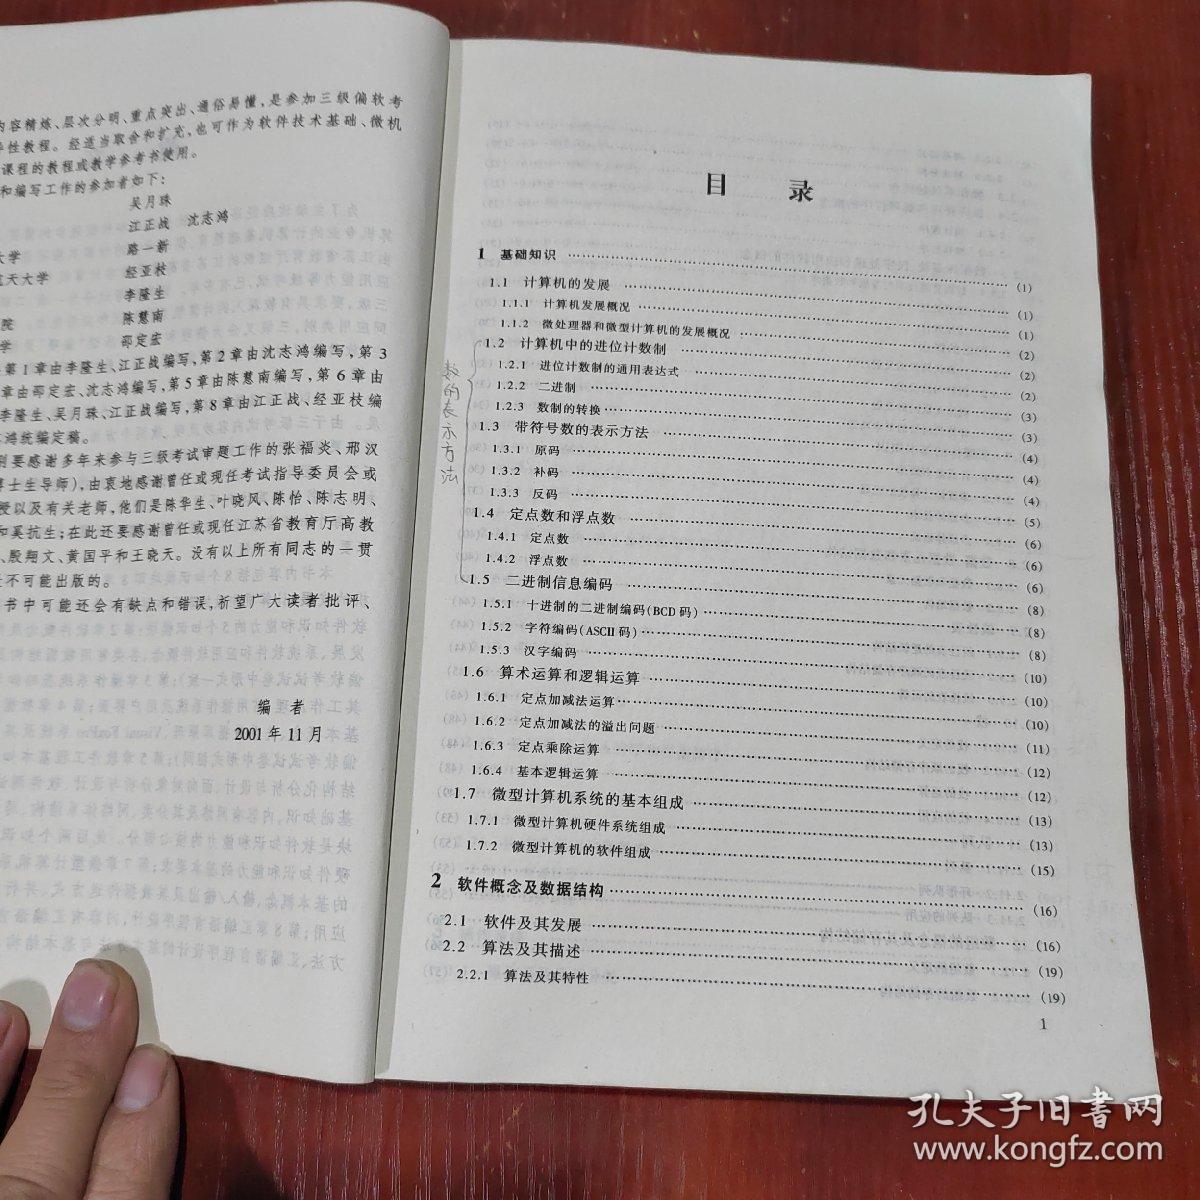 内容精炼、层次分明、重点突出、通俗易懂,是参加三级偏软考
性教程。经适当取舍和扩充,也可作为软件技术基础、微机
课程的教程或教学参考书使用。
和编写工作的参加者如下:
吴月珠
江正战 沈志鸿
大学 路一新
航天大学 经亚枝
李隆生
院 陈慧南
学 邵定宏
第1章由李隆生、江正战编写,第2章由沈志鸿编写,第3
章由邵定宏、沈志鸿编写,第5章由陈慧南编写,第6章由
李隆生、吴月珠、江正战编写,第8章由江正战、经亚枝编
鸿统编定稿。
别要感谢多年来参与三级考试审题工作的张福炎、邢汉
博士生导师),由衷地感谢曾任或现任考试指导委员会或
授以及有关老师,他们是陈华生、叶晓风、陈怡、陈志明、
和奚抗生;在此还要感谢曾任或现任江苏省教育厅高教
、殷翔文、黄国平和王晓天。没有以上所有同志的一贯
不可能出版的。
书中可能还会有缺点和错误,祈望广大读者批评、
编者
2001年11月
目 录
1 基础知识 (1)
1.1 计算机的发展 (1)
1.1.1 计算机发展概况 (1)
1.1.2 微处理器和微型计算机的发展概况 (2)
1.2 计算机中的进位计数制 (2)
1.2.1 进位计数制的通用表达式 (2)
1.2.2 二进制 (3)
1.2.3 数制的转换 (3)
1.3 带符号数的表示方法 (4)
1.3.1 原码 (4)
1.3.2 补码 (4)
1.3.3 反码 (5)
1.4 定点数和浮点数 (6)
1.4.1 定点数 (6)
1.4.2 浮点数 (6)
1.5 二进制信息编码 (8)
1.5.1 十进制的二进制编码(BCD码) (8)
1.5.2 字符编码(ASCII码) (8)
1.5.3 汉字编码 (10)
1.6 算术运算和逻辑运算 (10)
1.6.1 定点加减法运算 (10)
1.6.2 定点加减法的溢出问题 (11)
1.6.3 定点乘除运算 (12)
1.6.4 基本逻辑运算 (12)
1.7 微型计算机系统的基本组成 (13)
1.7.1 微型计算机硬件系统组成 (13)
1.7.2 微型计算机的软件组成 (15)
2 软件概念及数据结构 (16)
2.1 软件及其发展 (16)
2.2 算法及其描述 (19)
2.2.1 算法及其特性 (19)
1
数的表示方法
孔夫子旧书网
www.kongfz.com